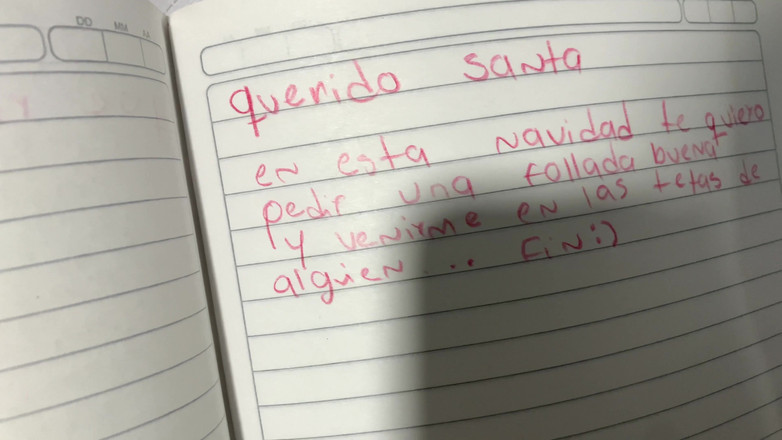 DD MM AA
querido santa
en esta navidad te quiero
pedir una follada buena
y venirme en las tetas de
alguien... Fin:)